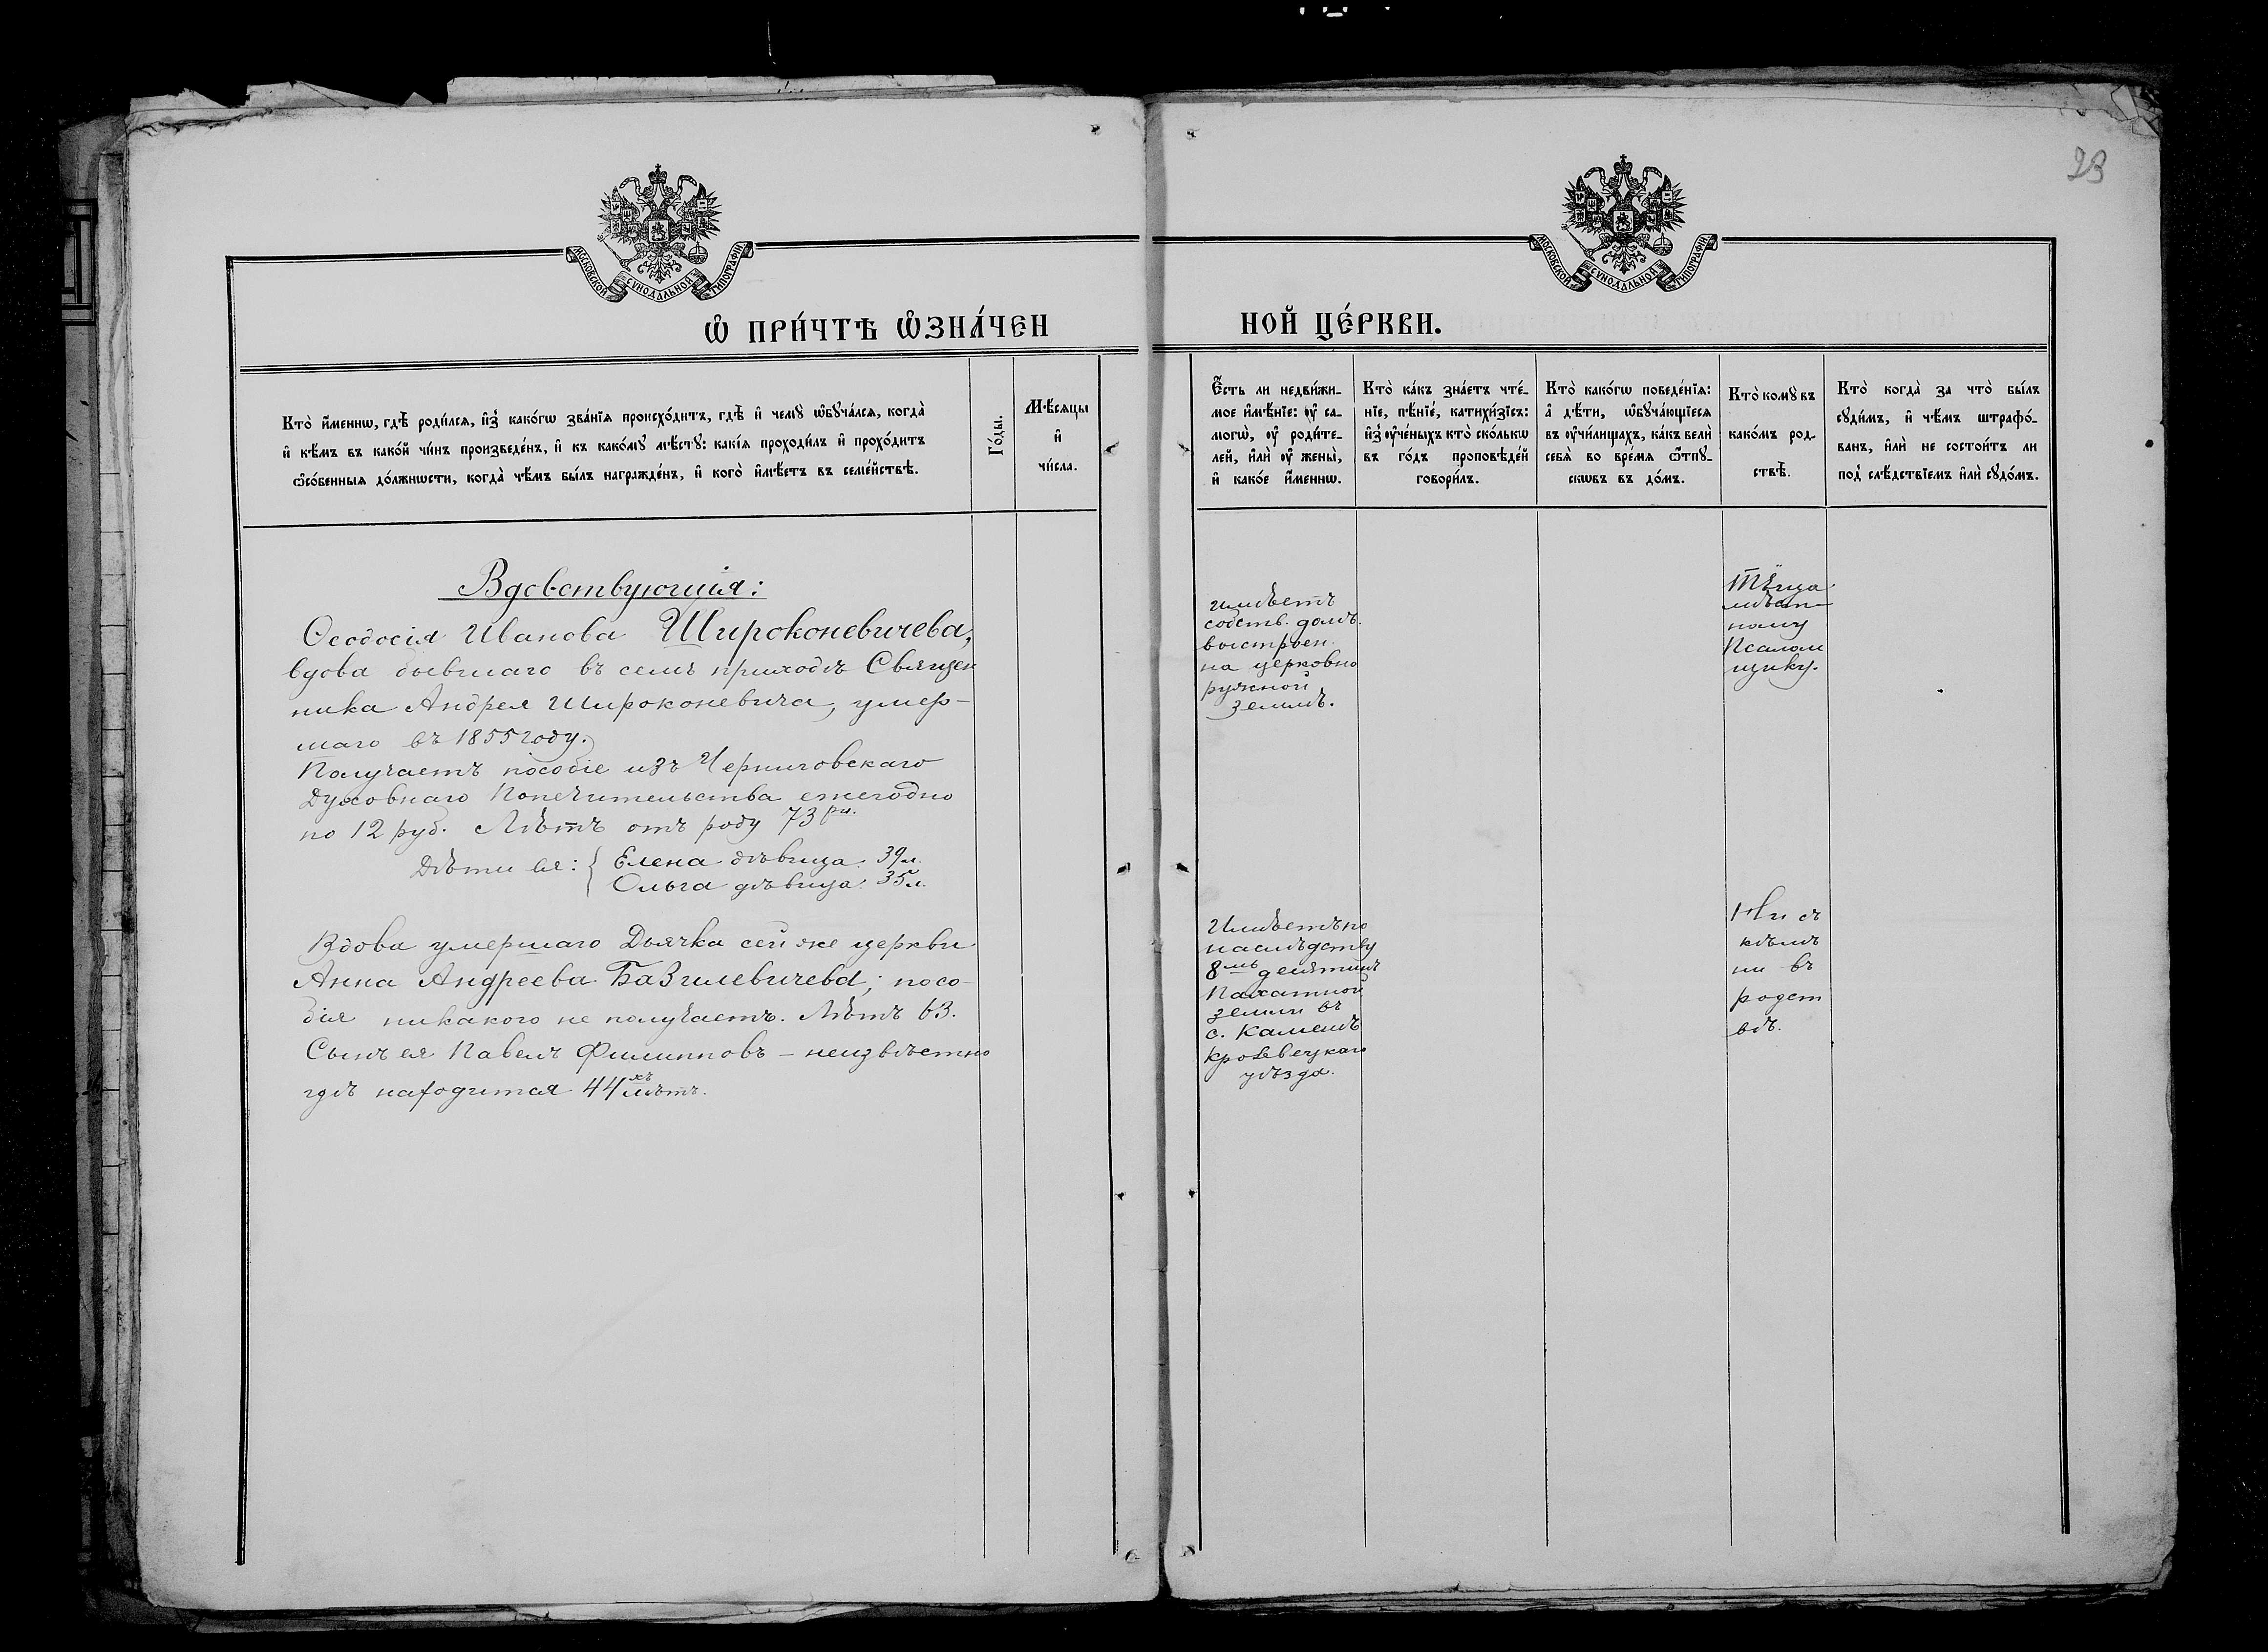 23
МОСКОВСКОЙ СѴНОДАЛЬНОЙ ТИПОГРАФІИ.
МОСКОВСКОЙ СѴНОДАЛЬНОЙ ТИПОГРАФІИ.
Ѡ҆ ПРИ́ЧТѢ Ѡ҆ЗНА́ЧЕН
НОЙ ЦЕ́РКВИ.
Кто̀ и҆́меннѡ, гдѣ̀ роди́лсѧ, и҆з̾ како́гѡ зва́нїѧ происхо́дитъ, гдѣ̀ и҆ чемꙋ̀ ѡ҆бꙋча́лсѧ, когда̀
и҆ кѣ́мъ въ како́й чи́нъ произведе́нъ, и҆ къ како́мꙋ мѣ́стꙋ: какі́ѧ проходи́лъ и҆ прохо́дитъ
ѻ҆со́бенныѧ до́лжнѡсти, когда̀ чѣ́мъ бы́лъ награжде́нъ, и҆ кого̀ и҆мѣ́етъ въ семе́йствѣ.
Го́ды.
Мѣ́сѧцы
и҆
чи́сла.
Є҆́сть ли недви́жи-
мое и҆мѣ́нїе: ᲂу҆ са-
могѡ̀, ᲂу҆ роди́те-
лей, и҆лѝ ᲂу҆ жены̀,
и҆ како́е и҆́меннѡ.
Кто̀ ка́къ зна́етъ чте́-
нїе, пѣ́нїе, катихи́зїсъ:
и҆з̾ ᲂу҆че́ныхъ кто̀ ско́лькѡ
въ го́дъ проповѣ́дей
говори́лъ.
Кто̀ како́гѡ поведе́нїѧ:
а҆ дѣ́ти, ѡ҆бꙋча́ющїесѧ
въ ᲂу҆чи́лищахъ, ка́къ велѝ
себѧ̀ во вре́мѧ ѿпꙋ-
скѡвъ въ до́мъ.
Кто̀ комꙋ̀ въ
како́мъ род-
ствѣ̀.
Кто̀ когда̀ за что̀ бы́лъ
сꙋди́мъ, и҆ чѣ́мъ штрафо́-
ванъ, и҆лѝ не состои́тъ ли
под̾ слѣ́дствїемъ и҆лѝ сꙋдо́мъ.
Вдовствующія:
Ѳеодосія Иванова Широконевичева,
вдова бывшаго въ семъ приходѣ Священ
ника Андрея Широконевича, умер-
шаго въ 1855 году.
Получаетъ пособіе изъ Черниговскаго
Духовнаго Попечительства ежегодно
по 12 руб. Лѣтъ отъ роду 73
Дѣти ея: { Елена дѣвица. 39 л.
Ольга дѣвица. 35 л.
Вдова умершаго Дьячка сей же церкви
Анна Андреева Базилевичева; посо-
бія никакого не получаетъ. Лѣтъ 63.
Сынъ ея Павелъ Филипповъ – неизвѣстно
гдѣ находится 44хъ лѣтъ.
имѣетъ
собств. домъ
выстроен.
на церковно
ружной
землѣ.
Тёща
мѣст-
ному
Псалом
щику.
Имѣетъ по
наслѣдству
8мь десятинъ
Пахатной
земли въ
с. Каменѣ
Кролевецкаго
уѣзда.
Ни съ
кѣмъ
ни въ
родст
вѣ.